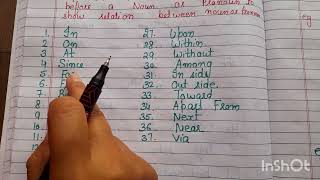 before a Noun or Pronoun to
show relation between noun or Pronoun
1. In
2. On
3. At
4 Since
5 For
6
7
8
9.
10
11
27. Upon
28. Within
29. Without
30. Among
31. In side
32. Out side.
33. Toward
34. Apart From
35. Next
36. Near
37. Via
InShOt